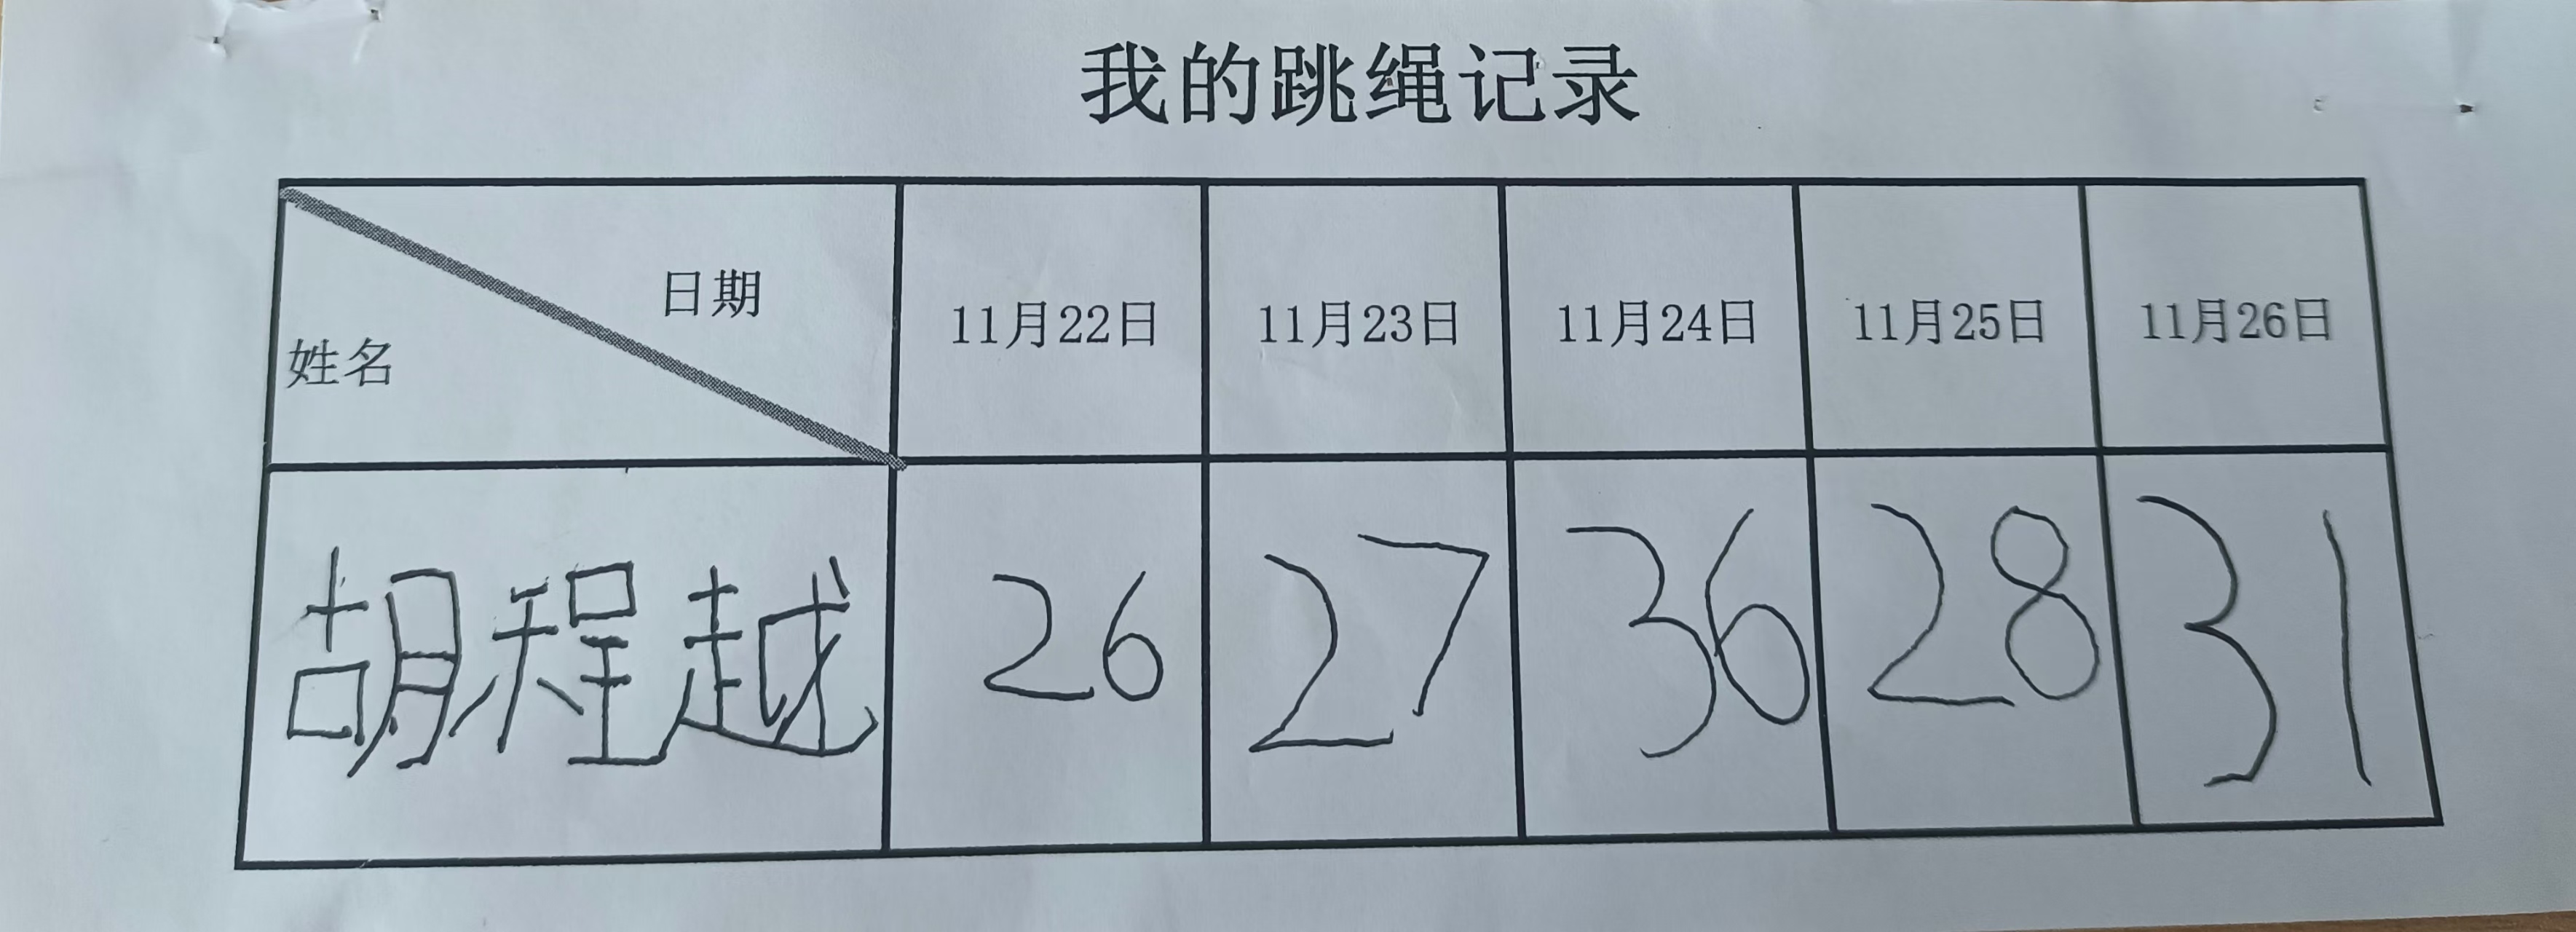 我的跳绳记录
日期 11月22日 11月23日 11月24日 11月25日 11月26日
姓名
胡程越 26 27 36 28 31